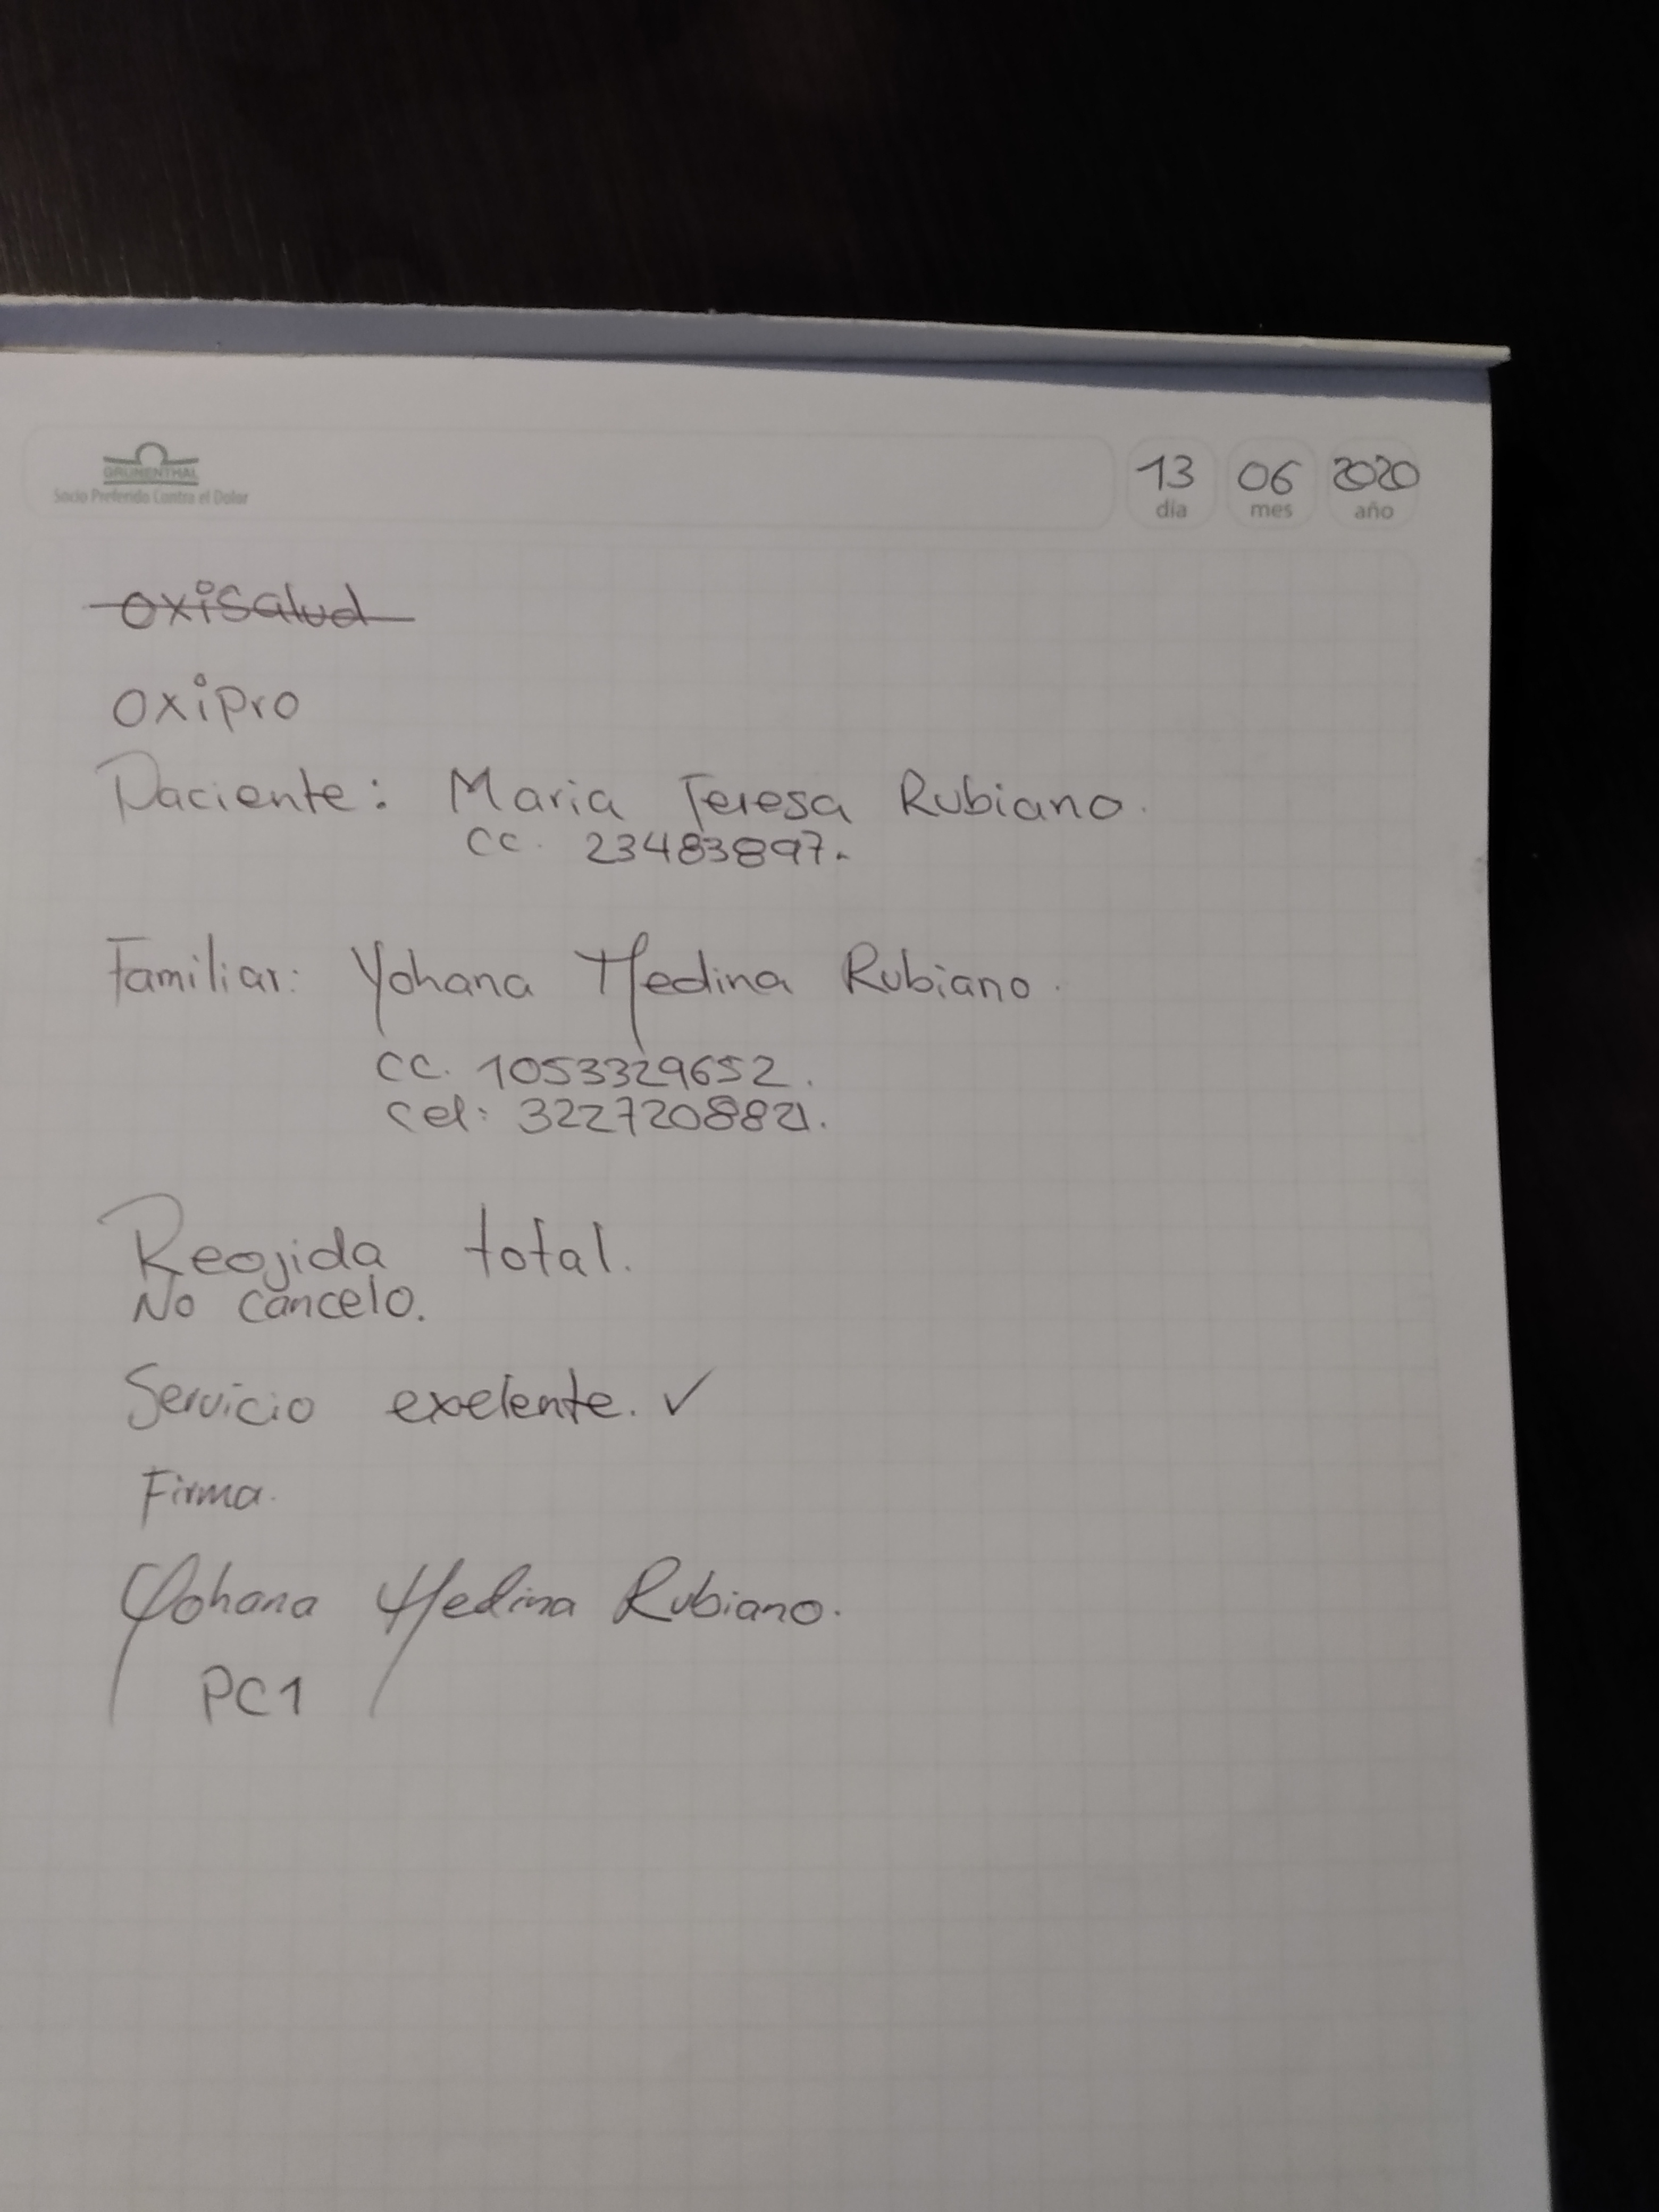 GRUNENTHAL
Socio Preferido Contra el Dolor
13 06 2020
día mes año
oxisalud
oxipro
Paciente: Maria Teresa Rubiano.
CC. 23483897.
Familiar: Yohana Medina Rubiano.
CC. 1053329652.
Cel: 3227208821.
Reojida total.
No cancelo.
Servicio exelente. ✓
Firma.
Yohana Medina Rubiano.
PC1